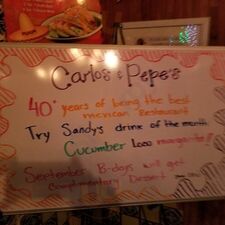 Carlos & Pepe's
40+ years of being the best
mexican Restaurant
Try Sandy's drink of the month
Cucumber Loco margarita!!
September B-days will get
Complimentary Dessert